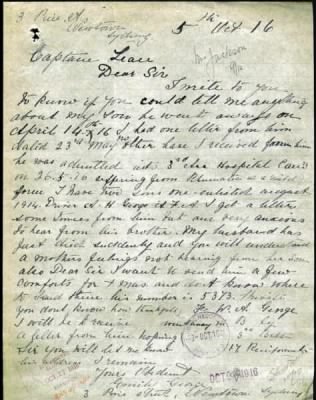 3 Price St
Newtown
Sydney
5th Oct 16
Mr Jackson
Captain Lean
Dear Sir
I write to you
to know if you could tell me anything
about my Son he went away on
April 14th 16 I had one letter from him
dated 23rd May other have I received from him
he was admitted at 3rd Hospital Cairo
on 26.5.16 suffering from Rheumatism
I have two sons one enlisted august
1914. Driver A. H. George F.A. I get a letter
some times from him but am very anxious
to hear from his brother. My husband has
just died suddenly and you will understand
a mothers feelings not hearing from her Son
also Dear Sir I want to send him a few
Comforts for Xmas and dont know where
to send them his number is 5373. Private
You dont know how thankful W. A. George
I will be to receive B. Coy
a letter from him hoping
Sir you will let me know 17 Reinforcements
his address I remain
Yours Obedient
Emily George
3 Price Street, Newtown Sydney
OCT 1916